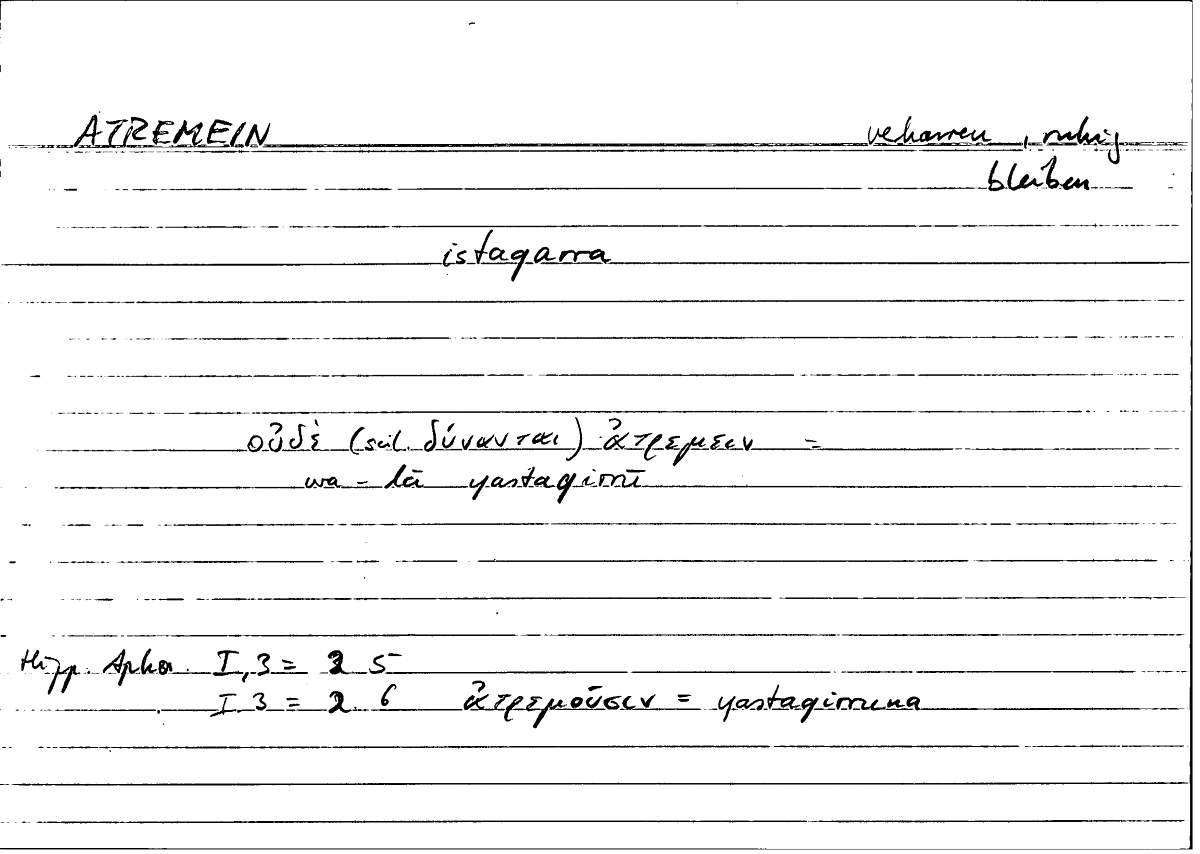 ATREMEIN veharren, ruhig
bleiben
istaqarra
οὐδὲ (scil. δύνανται) ἀτρεμεῖν =
wa-lā yastaqirrū
Hipp. Aphor. I,3 = 2 5
I 3 = 2. 6 ἀτρεμοῦσιν = yastaqirruna